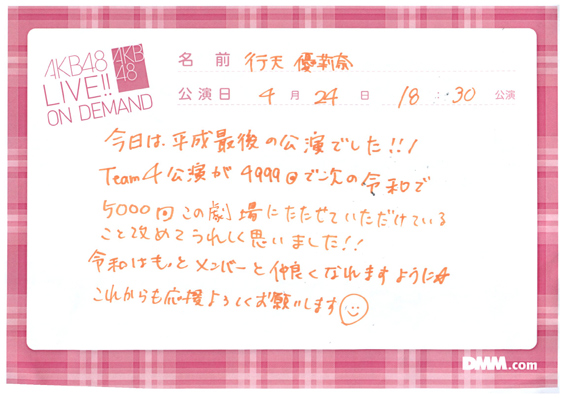 AKB48
LIVE!!
ON DEMAND
AKB
48
名前 行天 優莉奈
公演日 4月24日 18:30公演
今日は、平成最後の公演でした!!!
Team4公演が4999回で次の令和で
5000回この劇場にたたせていただけている
こと改めてうれしく思いました!!
令和はもっとメンバーと仲良くなれますように☆
これからも応援よろしくお願いします☺
DMM.com